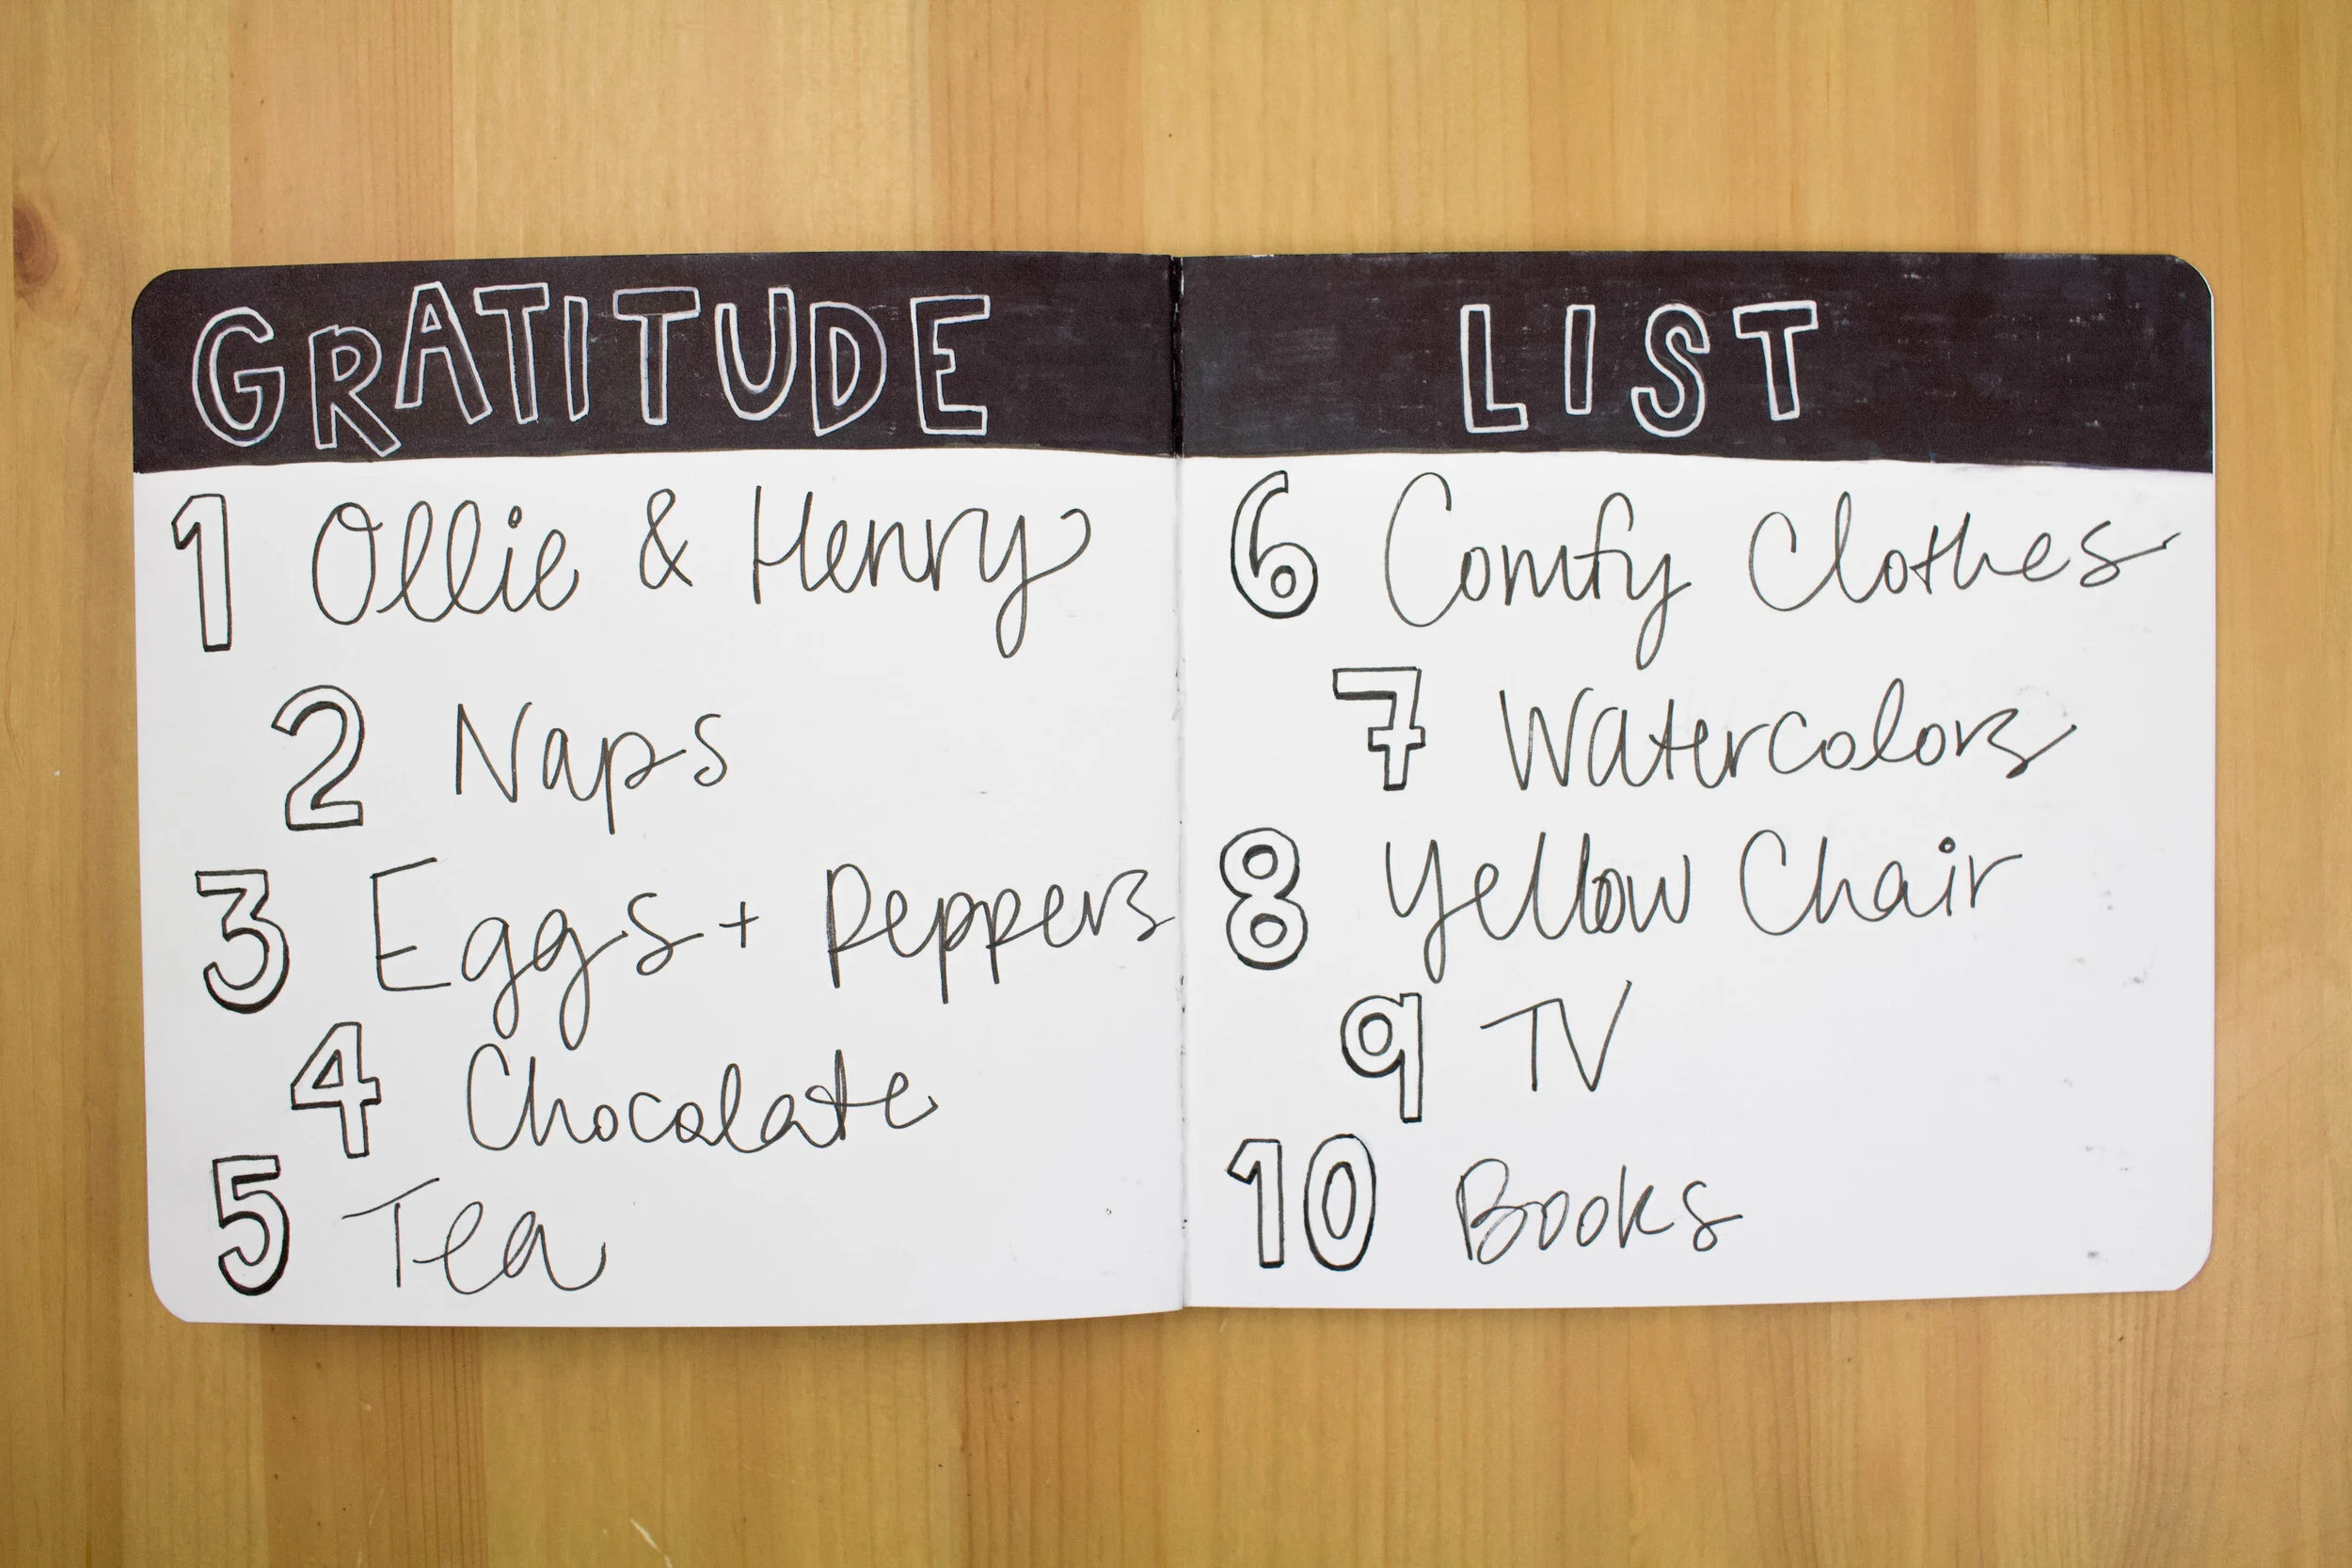 GRATITUDE
1 Ollie & Henry
2 Naps
3 Eggs + Peppers
4 Chocolate
5 Tea
LIST
6 Comfy Clothes
7 Watercolors
8 Yellow Chair
9 TV
10 Books